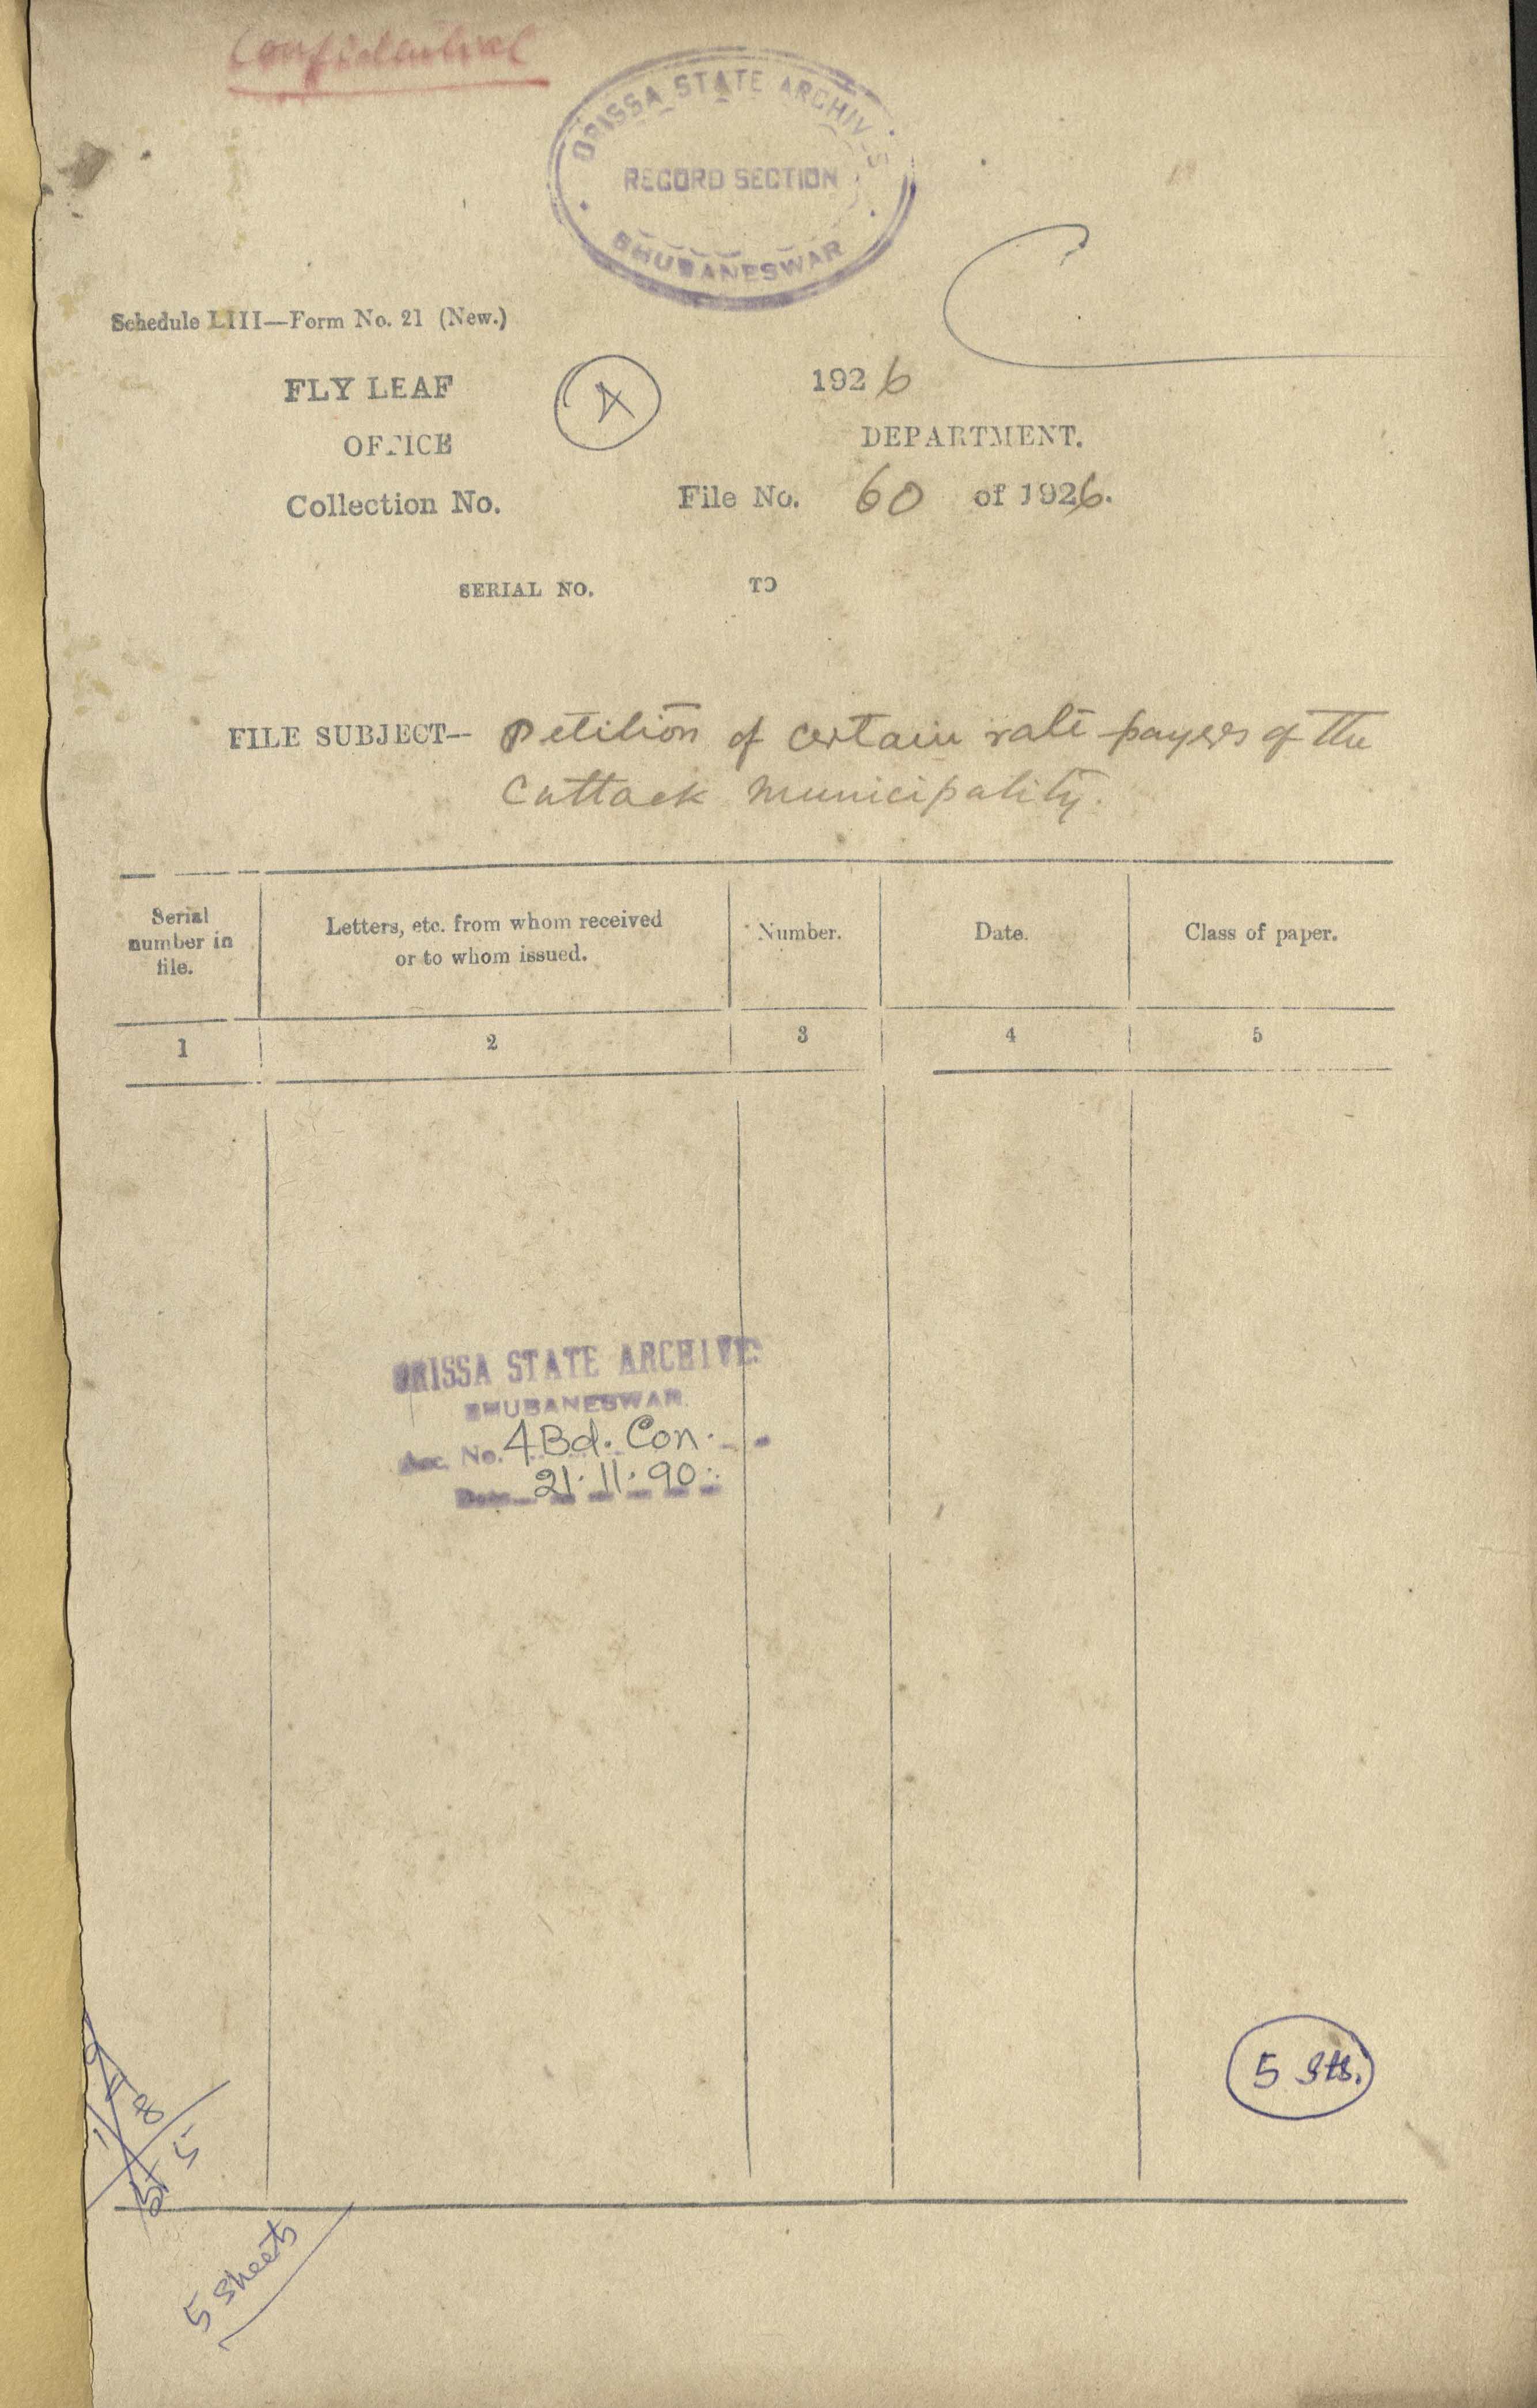 Confidential
ORISSA STATE ARCHIVES
RECORD SECTION
BHUBANESWAR
Schedule LIII—Form No. 21 (New.)
FLY LEAF
1926
OFFICE
DEPARTMENT.
Collection No.
File No. 60 of 1926.
SERIAL NO. TO
FILE SUBJECT— Petition of certain rate payers of the
Cuttack Municipality.
Serial
number in
file.
Letters, etc. from whom received
or to whom issued.
Number.
Date.
Class of paper.
1 2 3 4 5
ORISSA STATE ARCHIVES
BHUBANESWAR.
Acc. No. 4 Bd. Con.
Date 21.11.90
5 Sts.
5 sheets